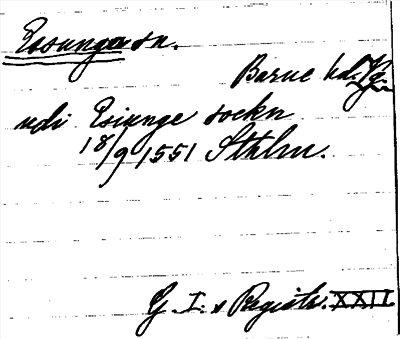 Essunga sn.
Barne hd. Vg.
udi Esiunge sockn
18/9 1551 Sthlm.
G. I:s Registr. XXII